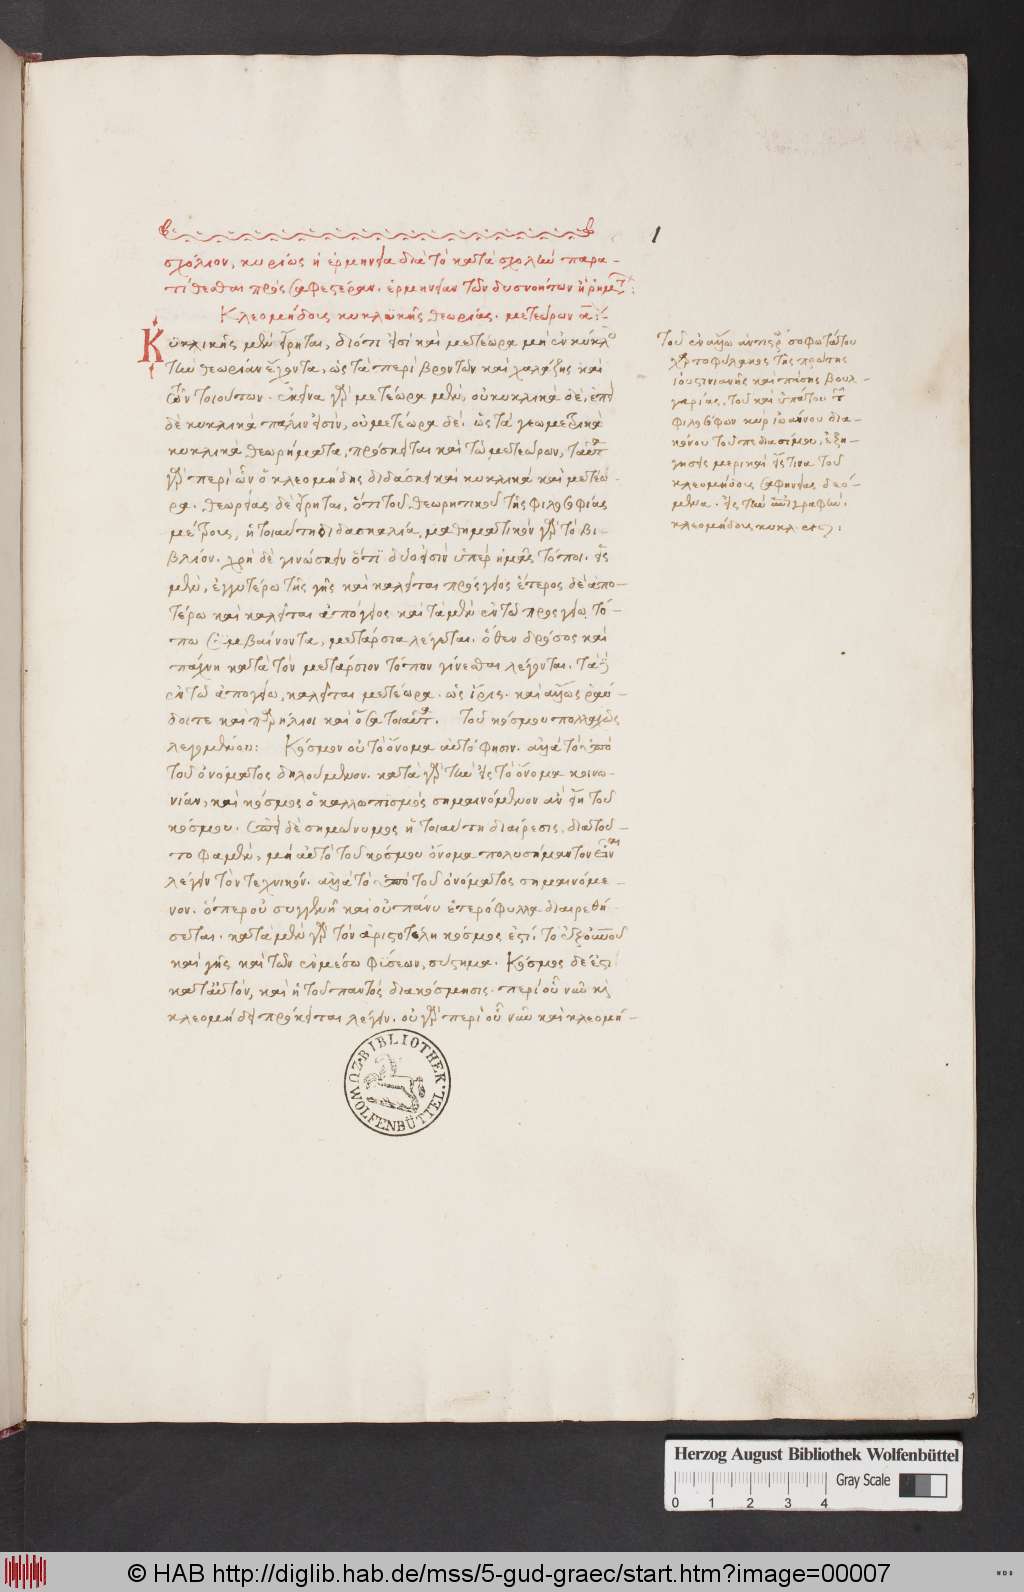 1
σχόλιον, κυρίως ἡ ἑρμηνεία διὰ τὸ κατὰ σχολὴν παρα-
τίθεσθαι πρὸς σαφεστέραν ἑρμηνείαν τῶν δυσνοήτων
Κλεομήδους κυκλικῆς θεωρίας μετεώρων
Κυκλικῆς μὲν εἴρηται, διότι εἰσὶ καὶ μετέωρα μὴ ἐν κύκλῳ
τὴν θεωρίαν ἔχοντα, ὡς τὰ περὶ βροντῶν καὶ χαλάζης καὶ
τῶν τοιούτων. ἐκεῖνα γὰρ μετέωρα μὲν, οὐ κυκλικὰ δέ,
δὲ κυκλικὰ πάλιν εἰσὶν, οὐ μετέωρα δέ. ὡς τὰ γεωμετρικὰ
κυκλικὰ θεωρήματα, πρόσκειται καὶ τῷ μετεώρων, ταῦτα
γὰρ περὶ ὧν ὁ κλεομήδης διδάσκει καὶ κυκλικὰ καὶ μετέω-
ρα. θεωρίας δὲ εἴρηται, ὅτι τοῦ θεωρητικοῦ τῆς φιλοσοφίας
μέρους, ἡ τοιαύτη διδασκαλία, μαθηματικὸν γὰρ τὸ βι-
βλίον. χρὴ δὲ γινώσκειν ὅτι δύο εἰσὶν ὑπὲρ ἡμᾶς τόποι. εἷς
μὲν, ἐγγυτέρω τῆς γῆς καὶ καλεῖται πρόσγειος ἕτερος δὲ ἀπο-
τέρω καὶ καλεῖται ἀπόγειος καὶ τὰ μὲν ἐν τῷ προσγείῳ τό-
πῳ συμβαίνοντα, μετάρσια λέγεται. ὅθεν δρόσος καὶ
πάχνη κατὰ τὸν μετάρσιον τόπον γίνεσθαι λέγονται. τὰ δ
ἐν τῷ ἀπογείῳ, καλεῖται μετέωρα. ὡς ἶρις καὶ ἅλως ῥάβ-
δοι τε καὶ παρήλιοι καὶ ὅσα τοιαῦτα. τοῦ κόσμου πολλαχῶς
λεγομένου: Κόσμον οὐ τὸ ὄνομα αὐτό φησιν. ἀλλὰ τὸ ὑπὸ
τοῦ ὀνόματος δηλούμενον. κατὰ γὰρ τὴν εἰς τὸ ὄνομα κοινω-
νίαν, καὶ κόσμος ὁ καλλωπισμὸς σημαινόμενον ἂν εἴη τοῦ
κόσμου. ἐπεὶ δὲ ὁμώνυμος ἡ τοιαύτη διαίρεσις, διὰ τοῦ-
το φαμὲν, μὴ αὐτὸ τοῦ κόσμου ὄνομα πολυσήμαντον εἶναι
λέγειν τὸν τεχνικόν. ἀλλὰ τὸ ὑπὸ τοῦ ὀνόματος σημαινόμε-
νον. ὅπερ οὐ συγγενῆ καὶ οὐ πάνυ ἑτερόφυλλα διαιρεθή-
σεται. κατὰ μὲν γὰρ τὸν ἀριστοτέλη κόσμος ἐστὶ, τὸ ἐξ οὐρανοῦ
καὶ γῆς καὶ τῶν ἐν μέσῳ φύσεων, σύστημα. Κόσμος δέ ἐστι
κατ' αὐτὸν, καὶ ἡ τοῦ παντὸς διακόσμησις. περὶ οὗ νῦν
κλεομήδει πρόκειται λέγειν. οὐ γὰρ περὶ οὗ νῦν καὶ κλεομή-
τοῦ ἐν σοφωτάτου
χαρτοφύλακος τῆς πρώτης
ἰουστινιανῆς καὶ πάσης βουλ-
γαρίας, τοῦ καὶ ὑπάτου τῶν
φιλοσόφων κυρ ἰωάννου δια-
κόνου τοῦ πεδιασίμου, ἐξή-
γησις μερικὴ εἴς τινα τοῦ
κλεομήδους σαφηνείας δεό-
μενα.
κλεομήδους κυκλ
BIBLIOTHEK
ZU WOLFENBÜTTEL
Herzog August Bibliothek Wolfenbüttel
0 1 2 3 4
Gray Scale
© HAB http://diglib.hab.de/mss/5-gud-graec/start.htm?image=00007